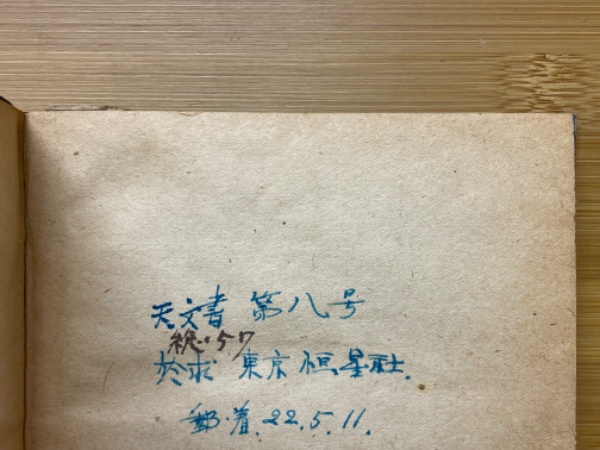 天文書 第八号
於求 東京恒星社.
郵.着.22.5.11.